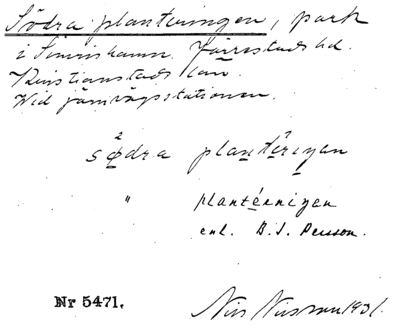 Södra planteringen, park
i Simrishamn. Järrestads hd.
Kristianstads län.
Wid järnvägsstationen.
2
sødra plantêriŋen
" plantérniŋen
enl. B. J. Persson.
Nr 5471.
Nils Nilsson 1931.